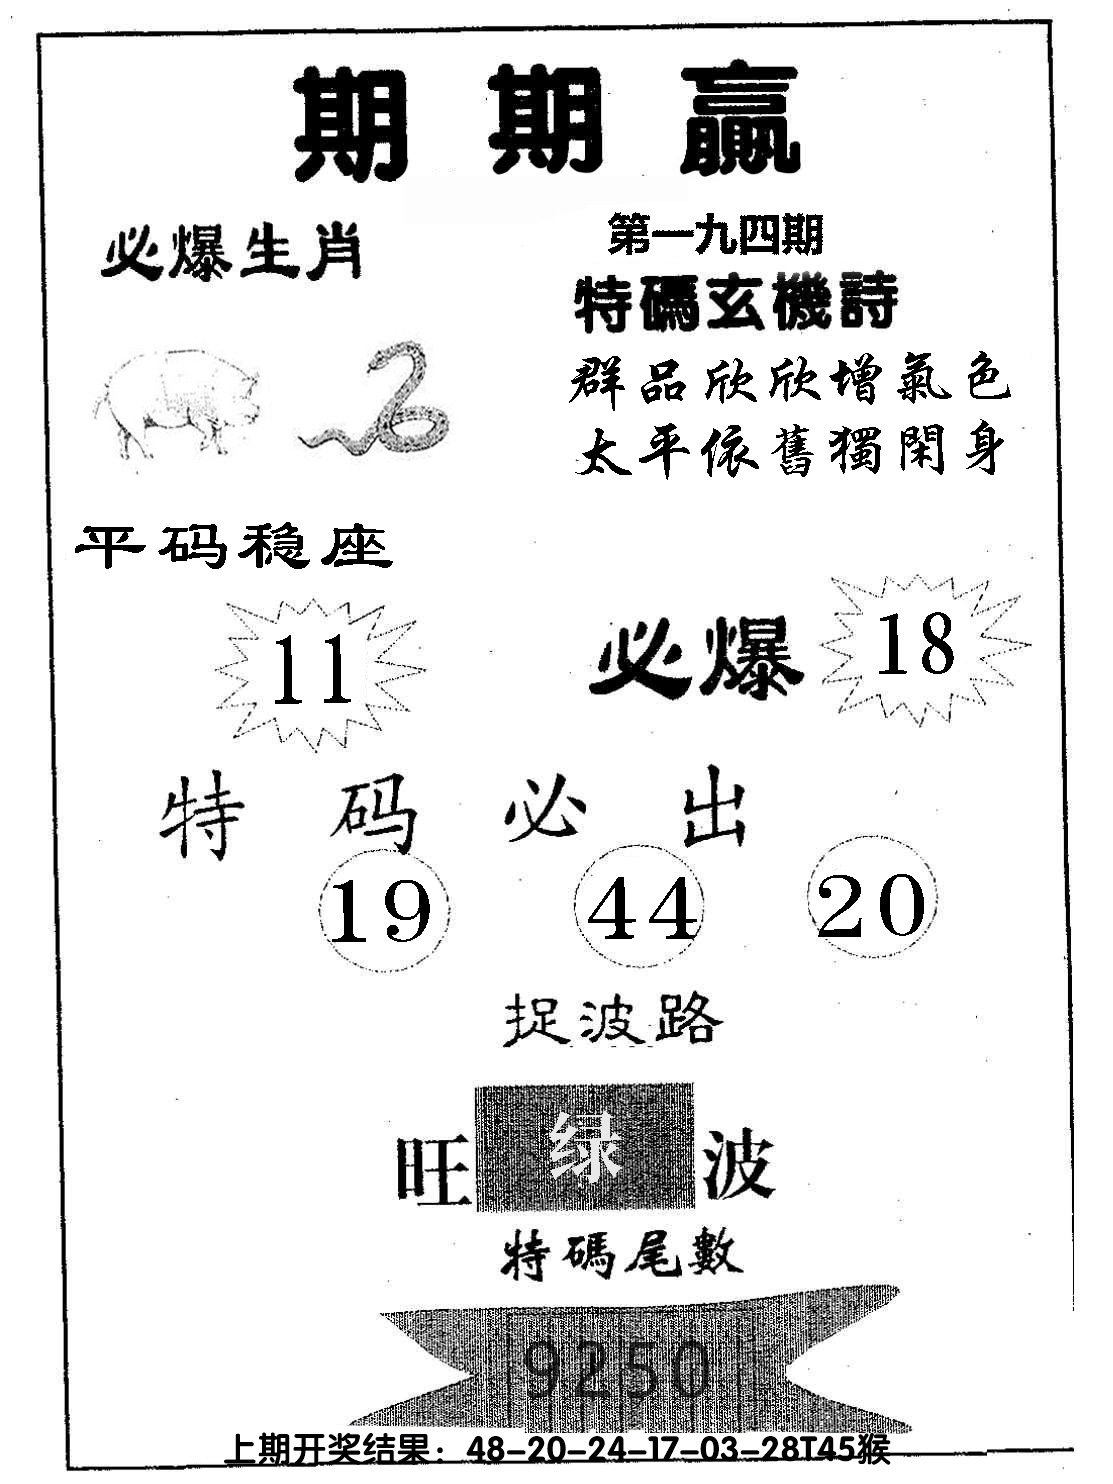 期期赢
必爆生肖
第一九四期
特碼玄機詩
群品欣欣增氣色
太平依舊獨閑身
平码稳座
11
必爆 18
特码必出
19 44 20
捉波路
旺 绿 波
特碼尾數
9250
上期开奖结果：48-20-24-17-03-28T45猴